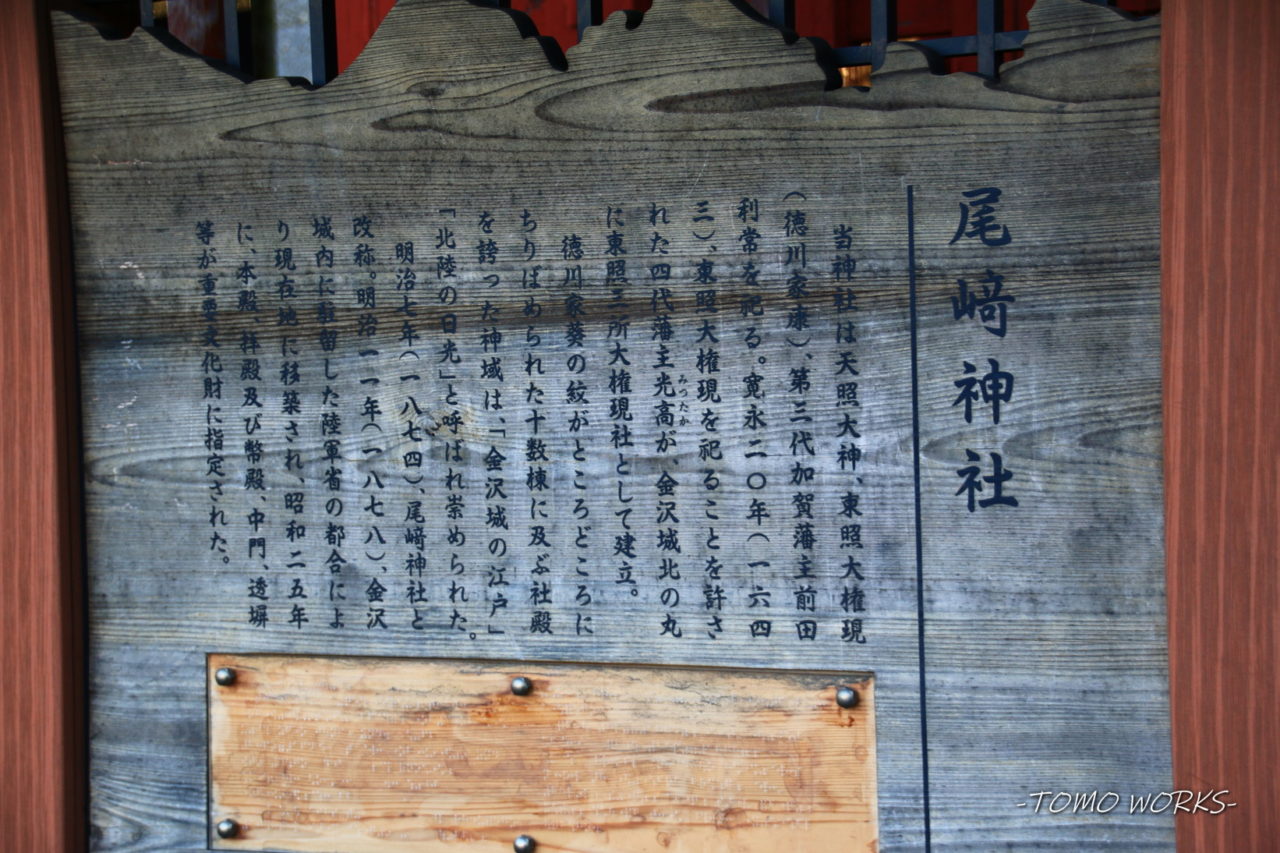 尾﨑神社
当神社は天照大神、東照大権現
（徳川家康）、第三代加賀藩主前田
利常を祀る。寛永二〇年（一六四
三）、東照大権現を祀ることを許さ
れた四代藩主光高が、金沢城北の丸
みつたか
に東照三所大権現社として建立。
徳川家葵の紋がところどころに
ちりばめられた十数棟に及ぶ社殿
を誇った神域は、「金沢城の江戸」
「北陸の日光」と呼ばれ崇められた。
明治七年（一八七四）、尾﨑神社と
改称。明治一一年（一八七八）、金沢
城内に駐留した陸軍省の都合によ
り現在地に移築され、昭和二五年
に、本殿、拝殿及び幣殿、中門、透塀
等が重要文化財に指定された。
-TOMO WORKS-